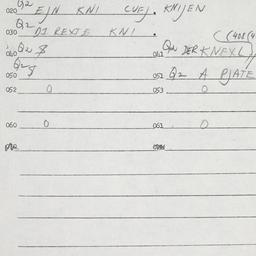 020 Q2 EJN KNI CUEJ. KNIJEN
030 Q2 DI REXJE KNI .
040 Q2 8 041 Q2 DER KNEXL
050 Q2 8 051 Q2 A PJATE
052 0 053 0
060 0 061 0